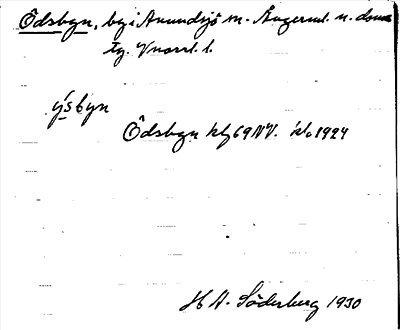 Ödsbyn, by i Anundsjö sn. Ångerml. n. doms
tg. Vnorrl. l.
ýsbyn
Ödsbyn kbl 69 NV. 1924
H A. Söderberg 1930